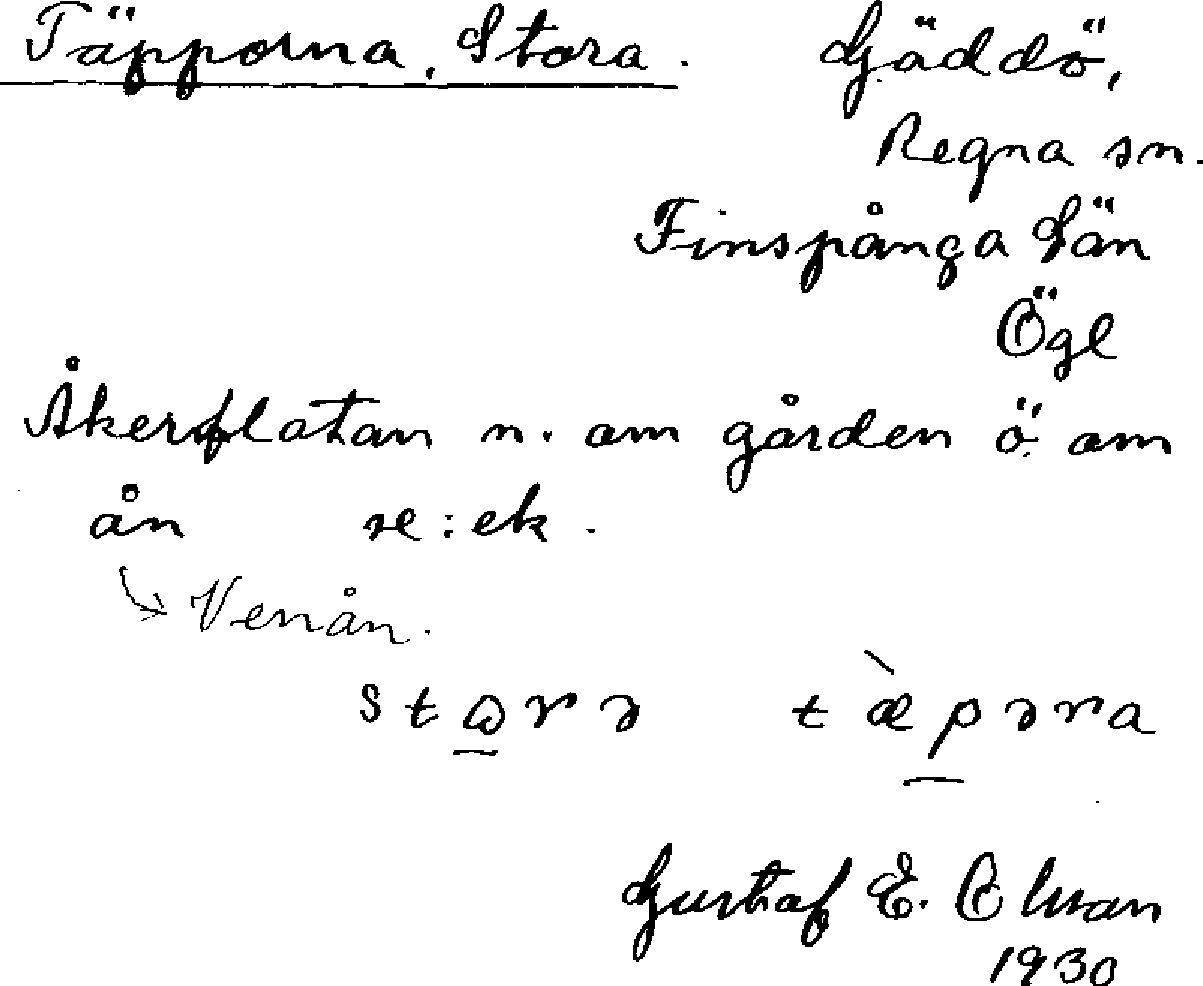 Täpporna, Stora. Gäddö,
Regna sn.
Finspånga län
Ögl
Åkerflatan n. om gården ö. om
ån se: ek.
↳ Venån.
stɷrə tæ̀pəra
Gustaf E. Olsson
1930